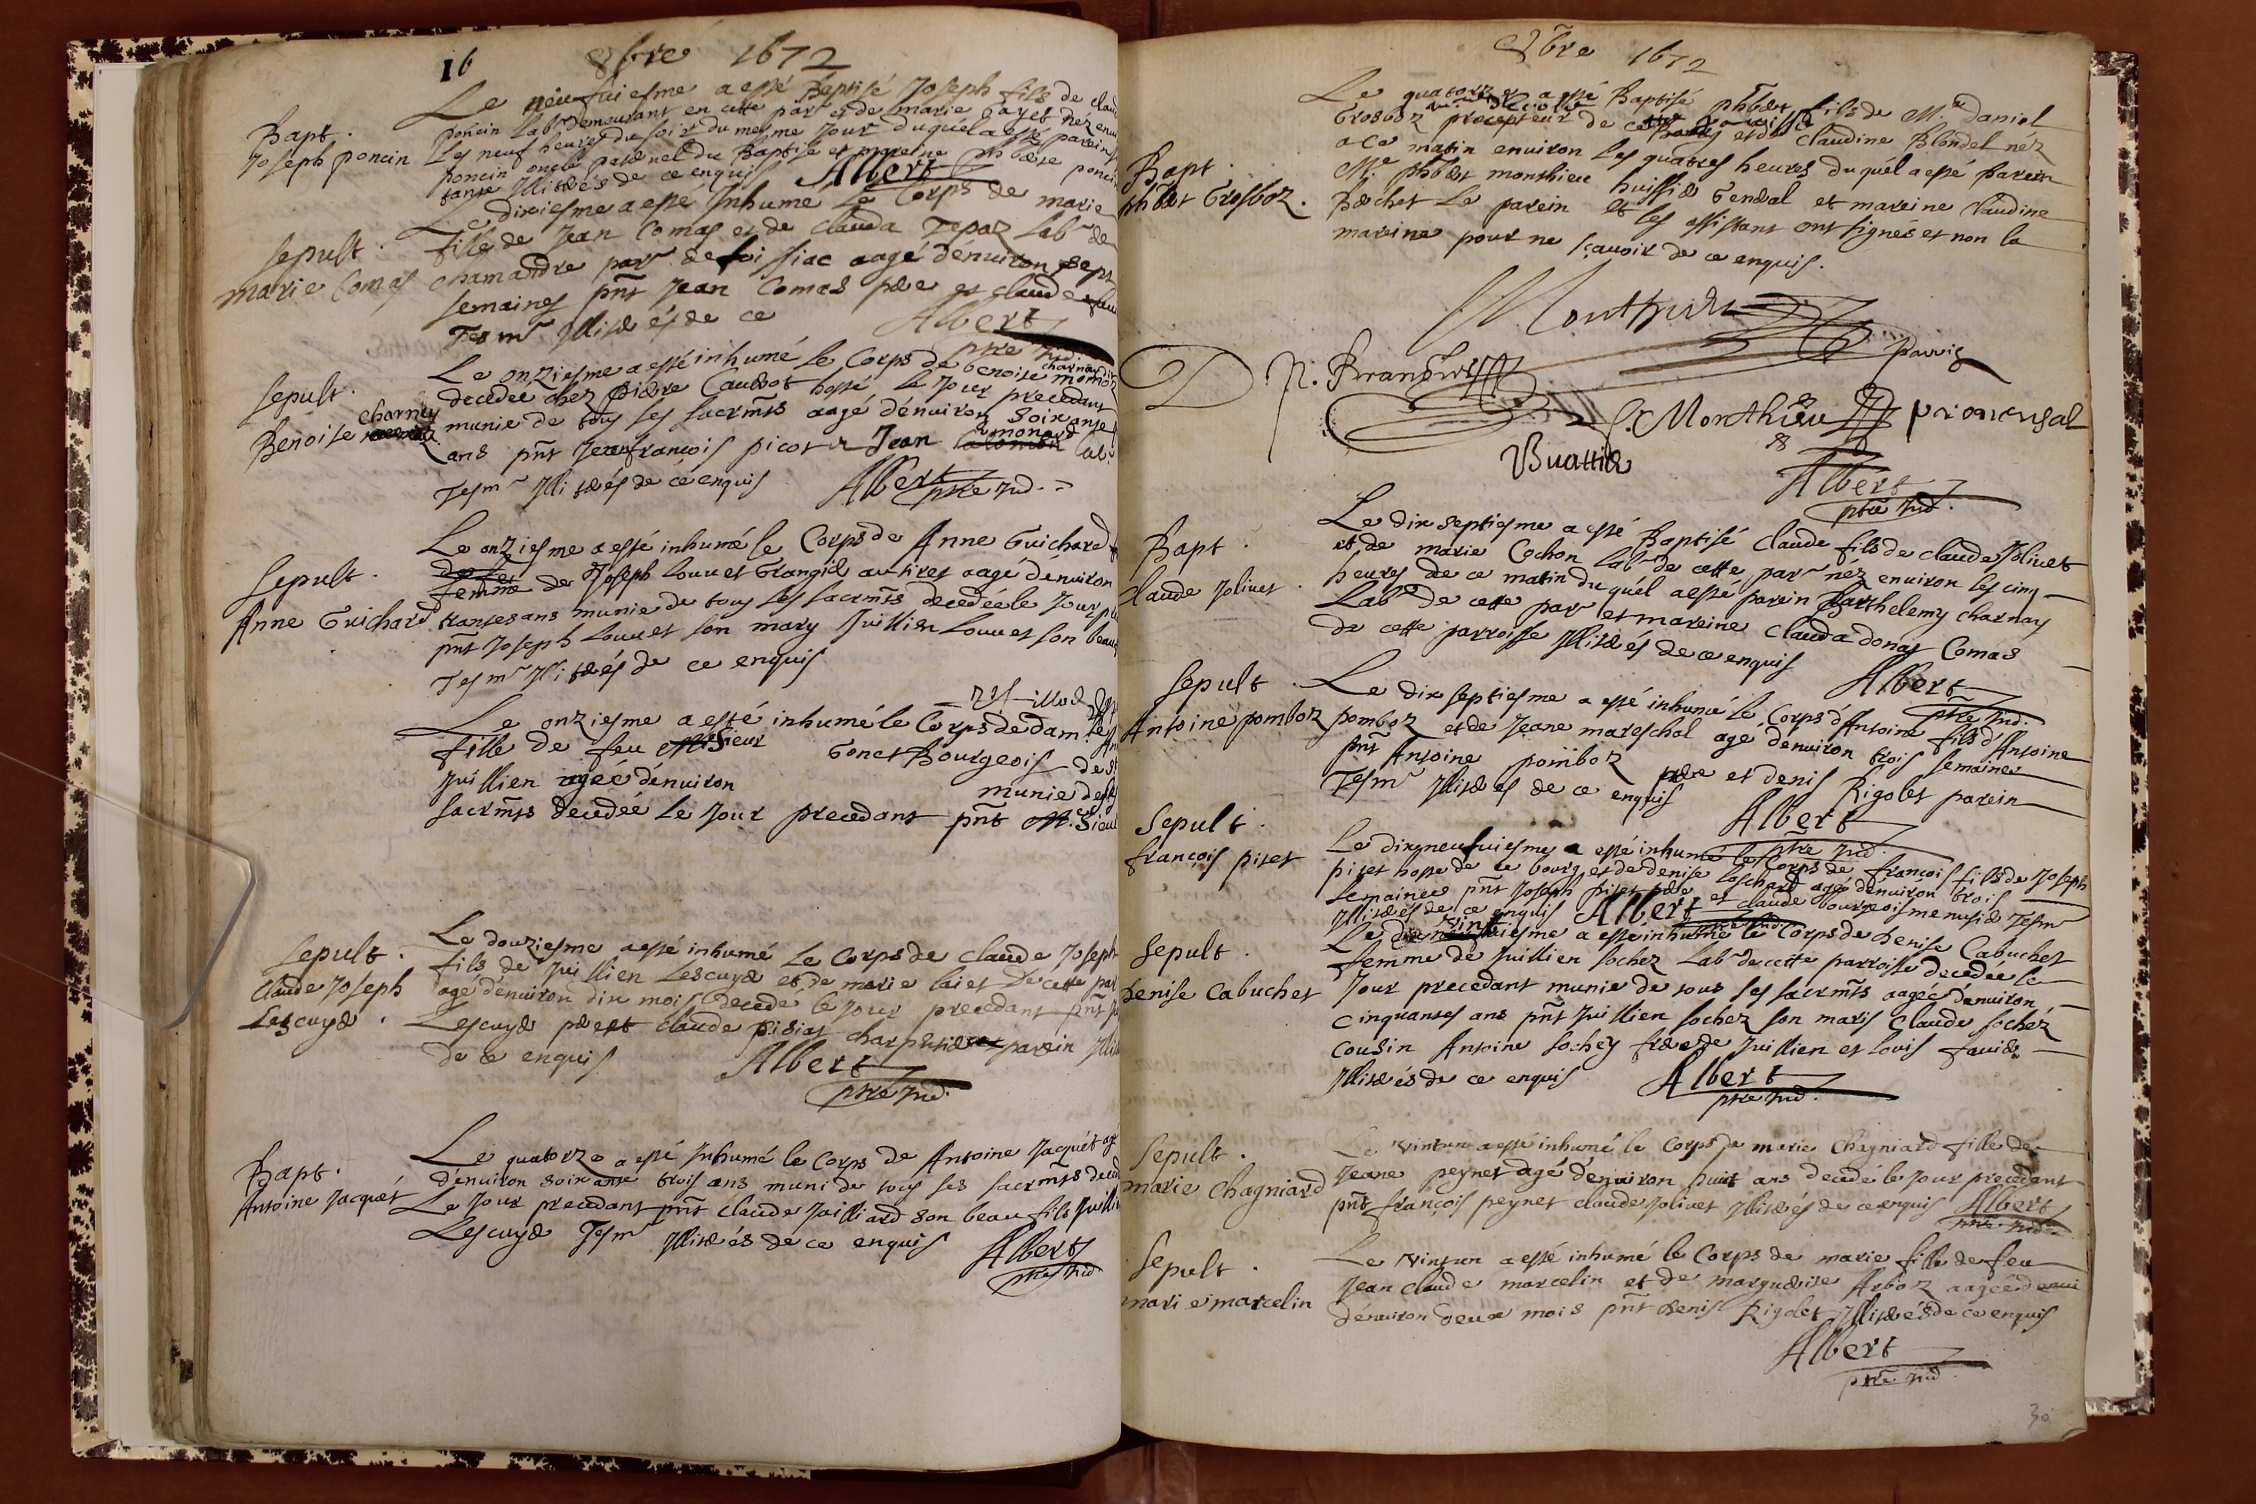 16
8bre 1672
Bapt.
Joseph poncin
Le neufuiesme a esté Baptisé Joseph fils de claud
poncin Labr demeurant en cette parr et de marie Gayet néz enui
Les neuf heures du soir du mesme Jour duquel a esté parein
poncin oncle paternel du Baptisé et mareine poncin
tante Illiterés de ce enquis Albert
Sepult.
marie Comas
Le dixiesme a esté Inhumé Le Corps de marie
fille de Jean Comas et de Clauda Labr de
chamandre parr de aagé d'enuiron sept
semaines pnt Jean Comas pere et claude
Tesmr Illiterés de ce Albert
ptre Ind
Sepult.
Benoise charnay
Le onziesme a esté inhumé le Corps de benoise charnay
decedee chez pierre Caudot hoste le Jour precedant
munie de tous ses sacrmts aagé d'enuiron soixante
ans pnt Jean francois picot et Jean monard lab
Tesmr Illiterés de cé enquis Albert
ptre Ind.
Sepult.
Anne Guichard
Le onziesme a esté inhumé le Corps de Anne Guichard
femme de Joseph Louuet Granger aagé d'enuiron
trantes ans munie de tous les sacrmts decedée le Jour
pnt Joseph Louuet son mary Juillien Louuet son beau
Tesmr Illiterés de ce enquis
Le onziesme a esté inhumé le Corps de damlle
fille de feu Sieur Gonet Bourgeois de St
Juillien agéé d'enuiron munie de
sacrmts decedée Le Jour precedant pnt Sieur
Sepult.
Claude Joseph
Lescuyer.
Le douziesme a esté inhumé Le Corps de Claude Joseph
fils de Juillien Lescuyer et de marie laiet De cette par
agé d'enuiron dix mois decede le Jour precedant pnt
Lescuyer pere et claude charpentier parein
de ce enquis Albert
ptre Ind.
Bapt.
Antoine Jacquet
Le quatorze a esté Inhumé le Corps de Antoine Jacquet
d'enuiron soixante trois ans muni de tous ses sacrmts deced
Le Jour precedant pnt Claude Juilliard son beau fils
Lescuyer Tesmr Illiterés de ce enquis
Albert
ptre Ind
8bre 1672
Bapt.
phbert Grosboz.
Le quatorze a esté Baptisé phbert fils de Mr daniel
Grosboz precepteur de et de Claudine Blondel néz
a ce matin enuiron Les quatres heures duquél a esté parein
Mr phbert monthieu huissier General et mareine
Bochet Le parein et les assistant ont signes et non la
mareine pour ne sçauoir de ce enquis.
Monthieu
Monthieu
prouensal
Buattier
Albert
ptre Ind.
Bapt.
Claude Joliuet.
Le dix septiesme a esté Baptisé Claude fils de claude Joliuet
et de marie Cochon Labr de cette parr néz enuiron les cinq
heures de ce matin du quél a esté parein Barthelemy charnay
Labr de cette parr et mareine Clauda donat Comas
de cette parroisse Illiterés de ce enquis Albert
ptre Ind.
Sepult.
Antoine pomboz
Le dix septiesme a esté inhumé le Corps d'Antoine fils d'Antoine
pomboz et de Jeane mareschal agé d'enuiron trois semaines
pnt Antoine pomboz pere et denis Rigolet parein
Tesmr Illiterés de ce enquis Albert
ptre Ind.
Sepult.
françois pitet
Le dixneufuiesme a esté inhumé le Corps de françois fils de Joseph
pitet hoste de ce bourg et de denise agé d'enuiron trois
semaines pnt Joseph pitet pere et claude bourgeois menusier Tésmr
Illiterés de ce enquis Albert
Sepult.
denise Cabuchet
Le vintiesme a esté inhumé le Corps de denise Cabuchet
femme de Juillien sochez Labr de cette parroisse decedée le
Jour precedant munie de tous ses sacrmts aagéé d'enuiron
Cinquantes ans pnt Juillien sochez son maris Claude sochéz
Cousin Antoine sochéz frere de Juillien et louis fauier
Illiterés de ce enquis Albert
ptre Ind.
Sepult.
marie Chagniard
Le vintun a esté inhumé le Corps de marie Chagniard fille de
Jeane peynet agé d'enuiron huit ans decedé le Jour precedant
pnt françois peynet claude Joliuet Illiterés de ce enquis Albert
ptre Ind.
Sepult.
marie marcelin
Le vintun a esté inhumé le Corps de marie fille de feu
Jean Claude marcelin et de marguerite Arboz aagéé
d'enuiron deux mois pnt denis Rigolet Illiterés de ce enquis
Albert
ptre Ind.
30